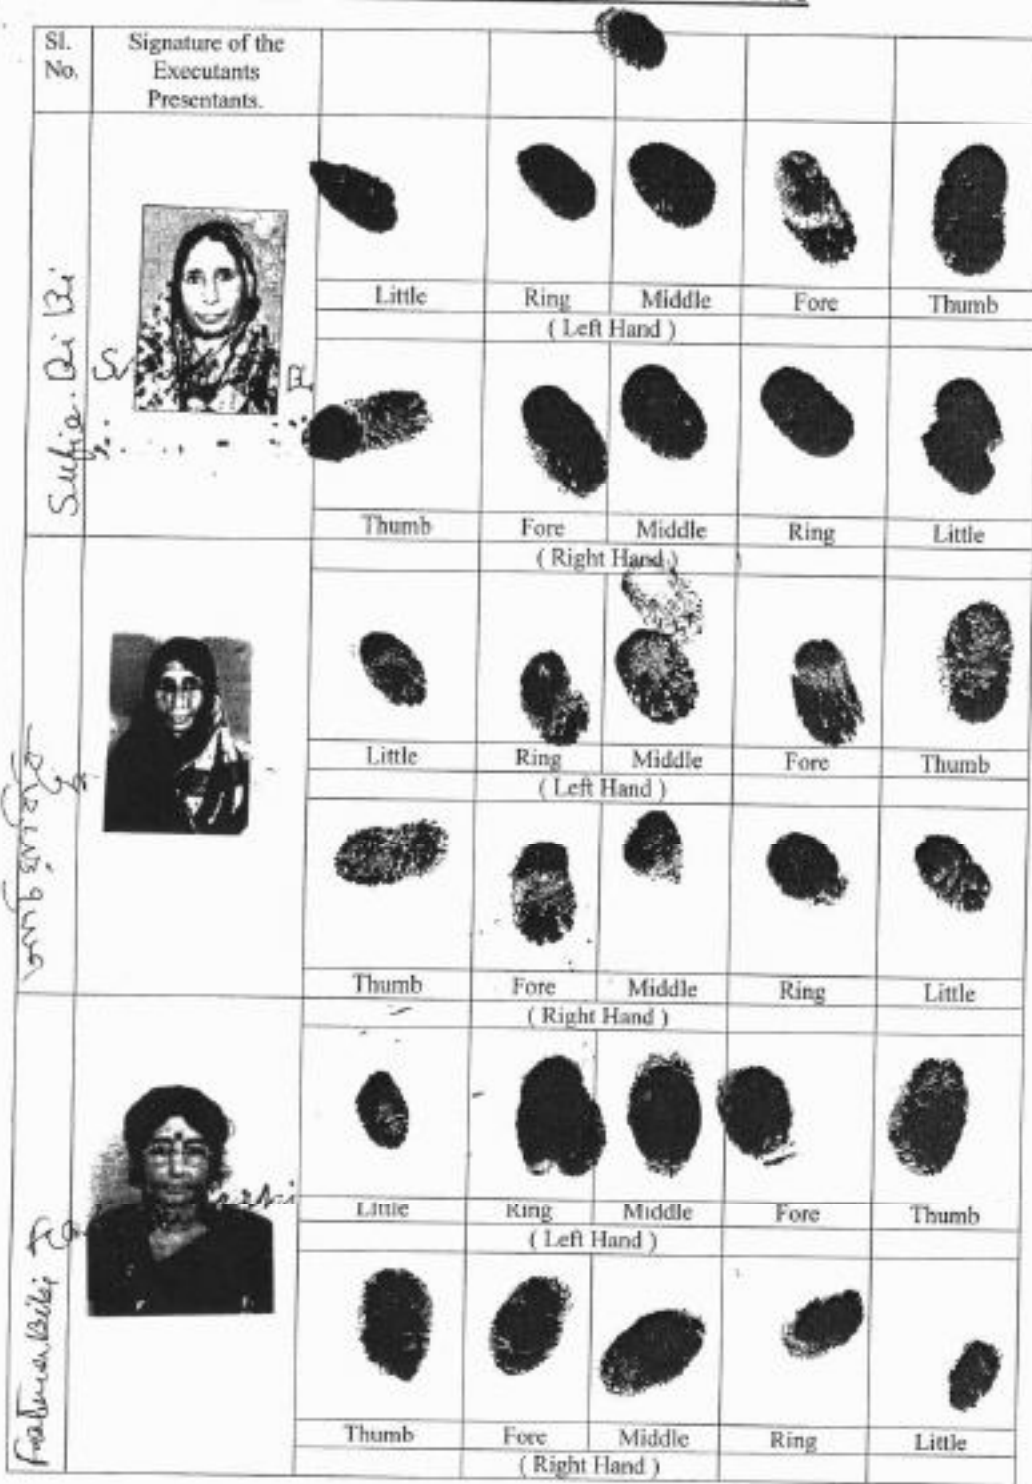 Sl.
No.
Signature of the
Executants
Presentants.
Sufia. Bi Bi
Little Ring Middle Fore Thumb
( Left Hand )
Thumb Fore Middle Ring Little
( Right Hand )
Little Ring Middle Fore Thumb
( Left Hand )
Thumb Fore Middle Ring Little
( Right Hand )
Fatima Bibi
Little Ring Middle Fore Thumb
( Left Hand )
Thumb Fore Middle Ring Little
( Right Hand )